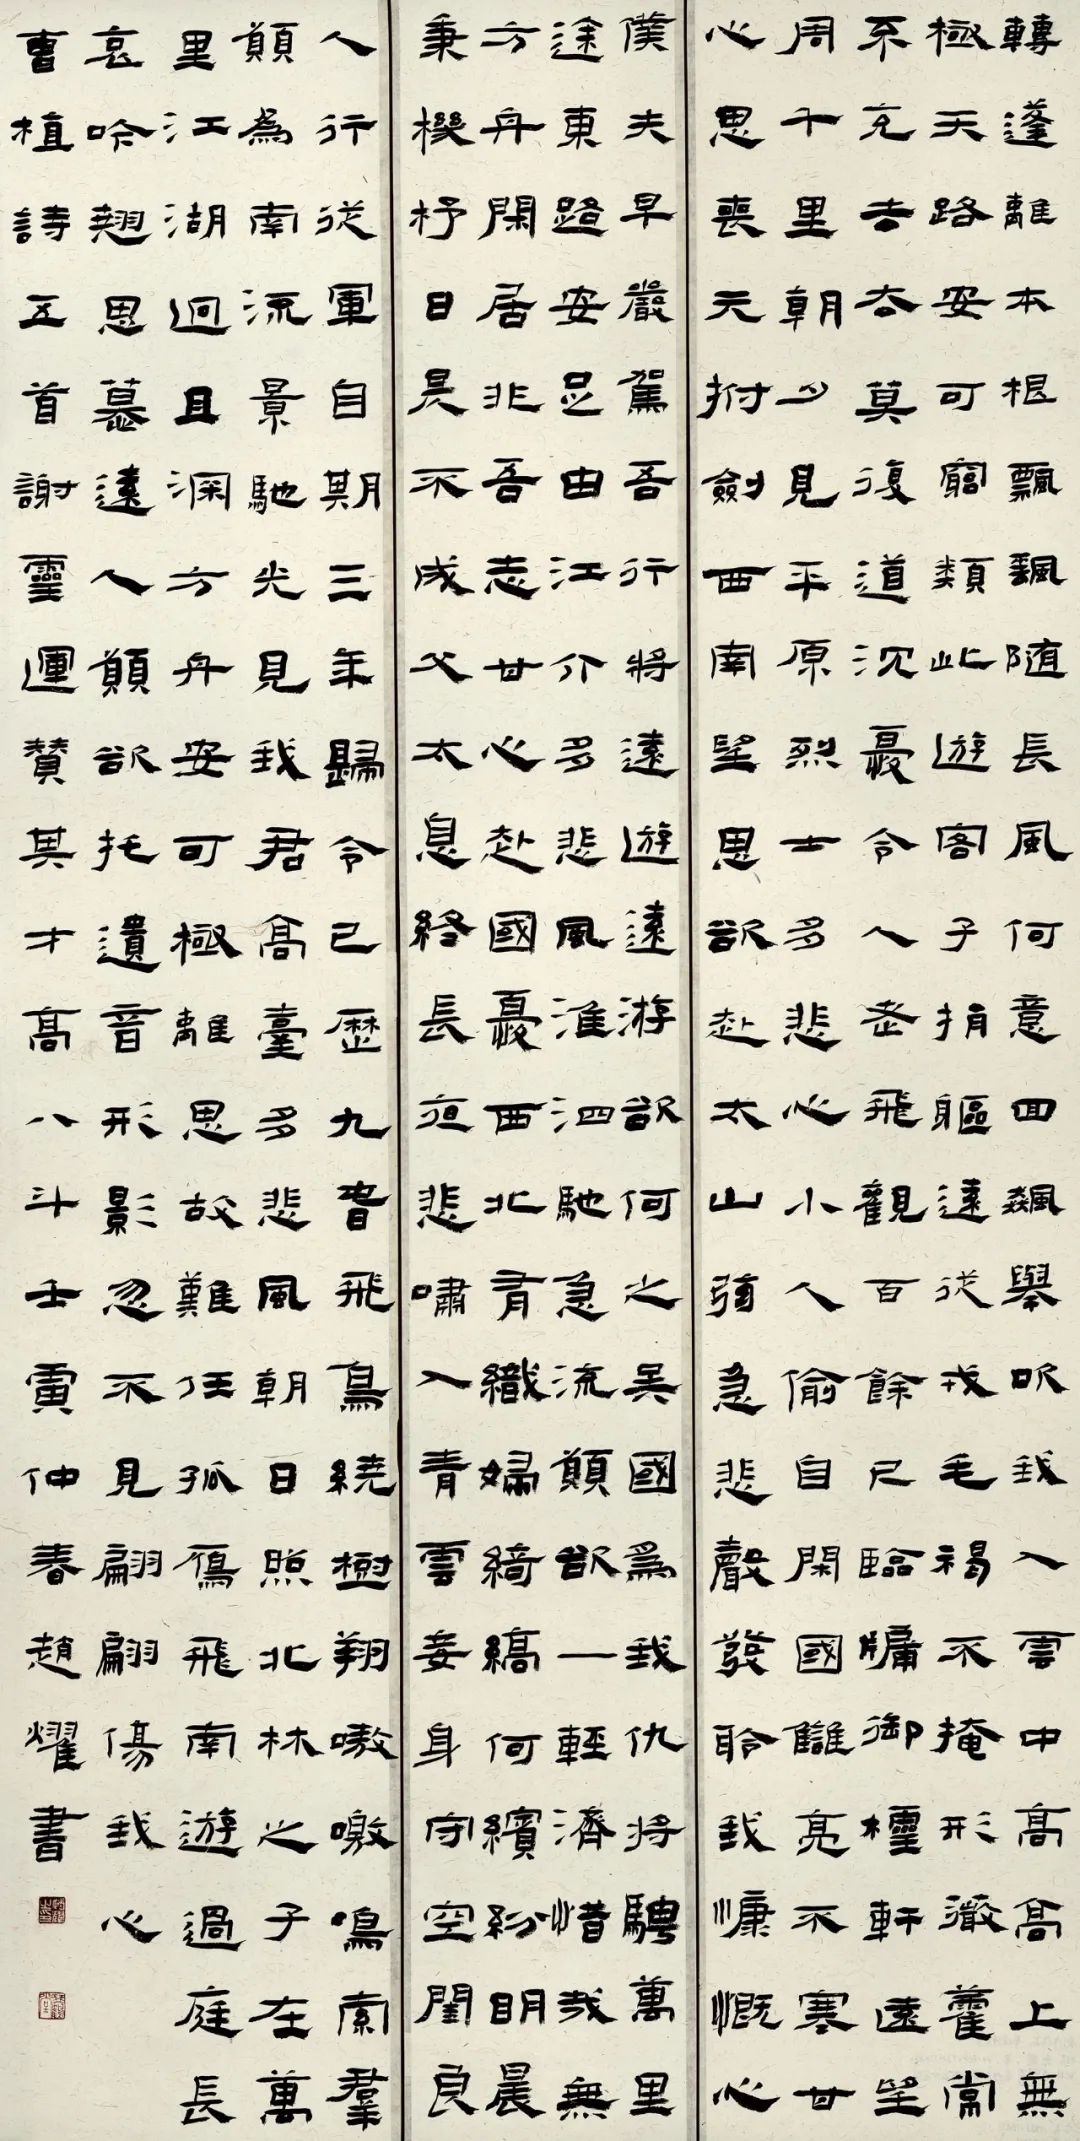 轉蓬離本根飄飖隨長風何意回飆舉吹我入雲中高高上無
極天路安可窮類此遊客子捐軀遠從戎毛褐不掩形薇藿常
不充去去莫復道沈憂令人老飛觀百餘尺臨牖御櫺軒遠望
周千里朝夕見平原烈士多悲心小人偷自閑國讎亮不塞甘
心思喪元拊劍西南望思欲赴太山弦急悲聲發聆我慷慨心
僕夫早嚴駕吾行將遠遊遠游欲何之吳國為我仇將騁萬里
途東路安足由江介多悲風淮泗馳急流願欲一輕濟惜哉無
方舟閑居非吾志甘心赴國憂西北有織婦綺縞何繽紛明晨
秉機杼日昃不成文太息終長夜悲嘯入青雲妾身守空閨良
人行從軍自期三年歸今已歷九春飛鳥繞樹翔噭噭鳴索羣
願為南流景馳光見我君高臺多悲風朝日照北林之子在萬
里江湖迥且深方舟安可極離思故難任孤鴈飛南遊過庭長
哀吟翹思慕遠人願欲托遺音形影忽不見翩翩傷我心
曹植詩五首謝靈運贊其才高八斗壬寅仲春趙耀書